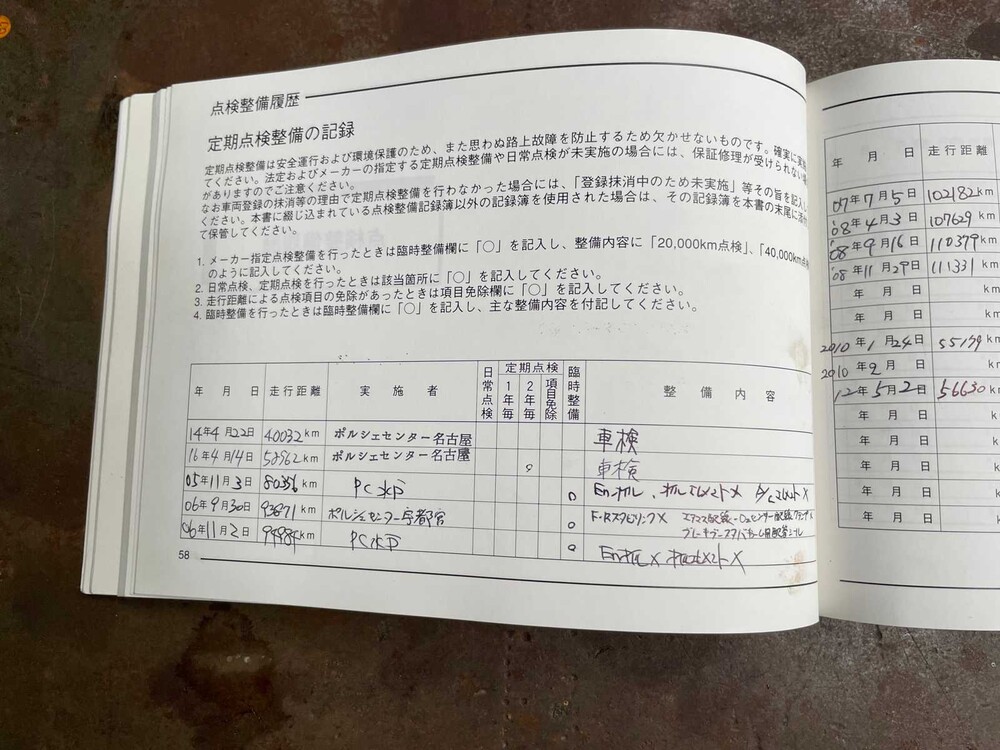 点検整備履歴
定期点検整備の記録
定期点検整備は安全運行および環境保護のため、また思わぬ路上故障を防止するため欠かせないものです。確実に実施
てください。法定およびメーカーの指定する定期点検整備や日常点検が未実施の場合には、保証修理が受けられない場
がありますのでご注意ください。
なお車両登録の抹消等の理由で定期点検整備を行わなかった場合には、「登録抹消中のため未実施」等その旨を記入し
ください。本書に綴じ込まれている点検整備記録簿以外の記録簿を使用された場合は、その記録簿を本書の末尾に添付
て保管してください。
1. メーカー指定点検整備を行ったときは臨時整備欄に「○」を記入し、整備内容に「20,000km点検」、「40,000km点検
のように記入してください。
2. 日常点検、定期点検を行ったときは該当箇所に「○」を記入してください。
3. 走行距離による点検項目の免除があったときは項目免除欄に「○」を記入してください。
4. 臨時整備を行ったときは臨時整備欄に「○」を記入し、主な整備内容を付記してください。
年 月 日 走行距離 実施者 日常点検 定期点検 1年毎 2年毎 項目免除 臨時整備 整備内容
14年4月22日 40032km ポルシェセンター名古屋 車検
16年4月14日 58962km ポルシェセンター名古屋 ○ 車検
05年11月3日 80356km PC水戸 ○ Enオイル、オイルエレメント×
06年9月30日 93871km ポルシェセンター宇都宮 ○ F・Rスタビリンク× エアマス配線・O2センター配線
06年11月2日 94984km PC水戸 ○ Enオイル× オイルエレメント×
58
年 月 日 走行距離
'07年7月5日 102182km
'08年4月3日 107629km
'08年9月16日 110379km
'08年11月29日 111331km
年 月 日 km
年 月 日 km
2010年1月24日 55179km
2010年2月
12年5月2日 56630km
年 月 日 km
年 月 日 km
年 月 日 km
年 月 日 km
年 月 日 km